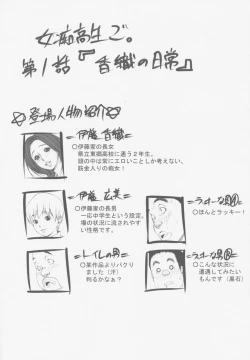 女痴高生ど。
第1話『香織の日常』
登場人物紹介
伊藤香織
○伊藤家の長女
県立東郷高校に通う2年生。
頭の中は常にエロいことしか考えない、
筋金入りの痴女！
伊藤広美
○伊藤家の長男
一応中学生という設定。
場の状況に流されやす
い性格。
ラッキーな男①
○ほんとラッキー！
トイレの男
○某作品よりパクり
ました（汗）
判るかなぁ？
ラッキーな男②
○こんな状況に
遭遇してみたい
もんです（黒石）